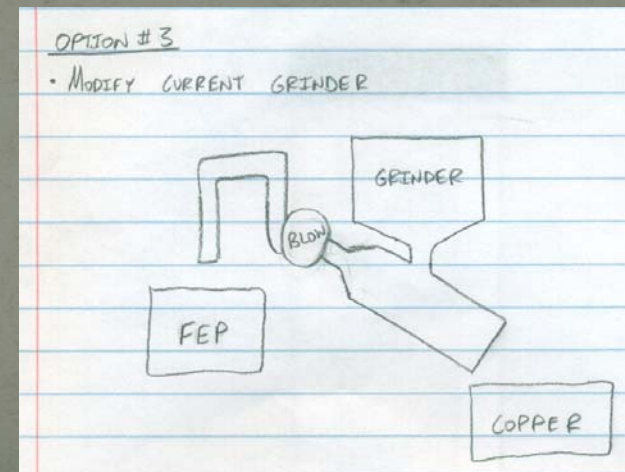 OPTION # 3
• MODIFY CURRENT GRINDER
GRINDER
BLOW
FEP
COPPER